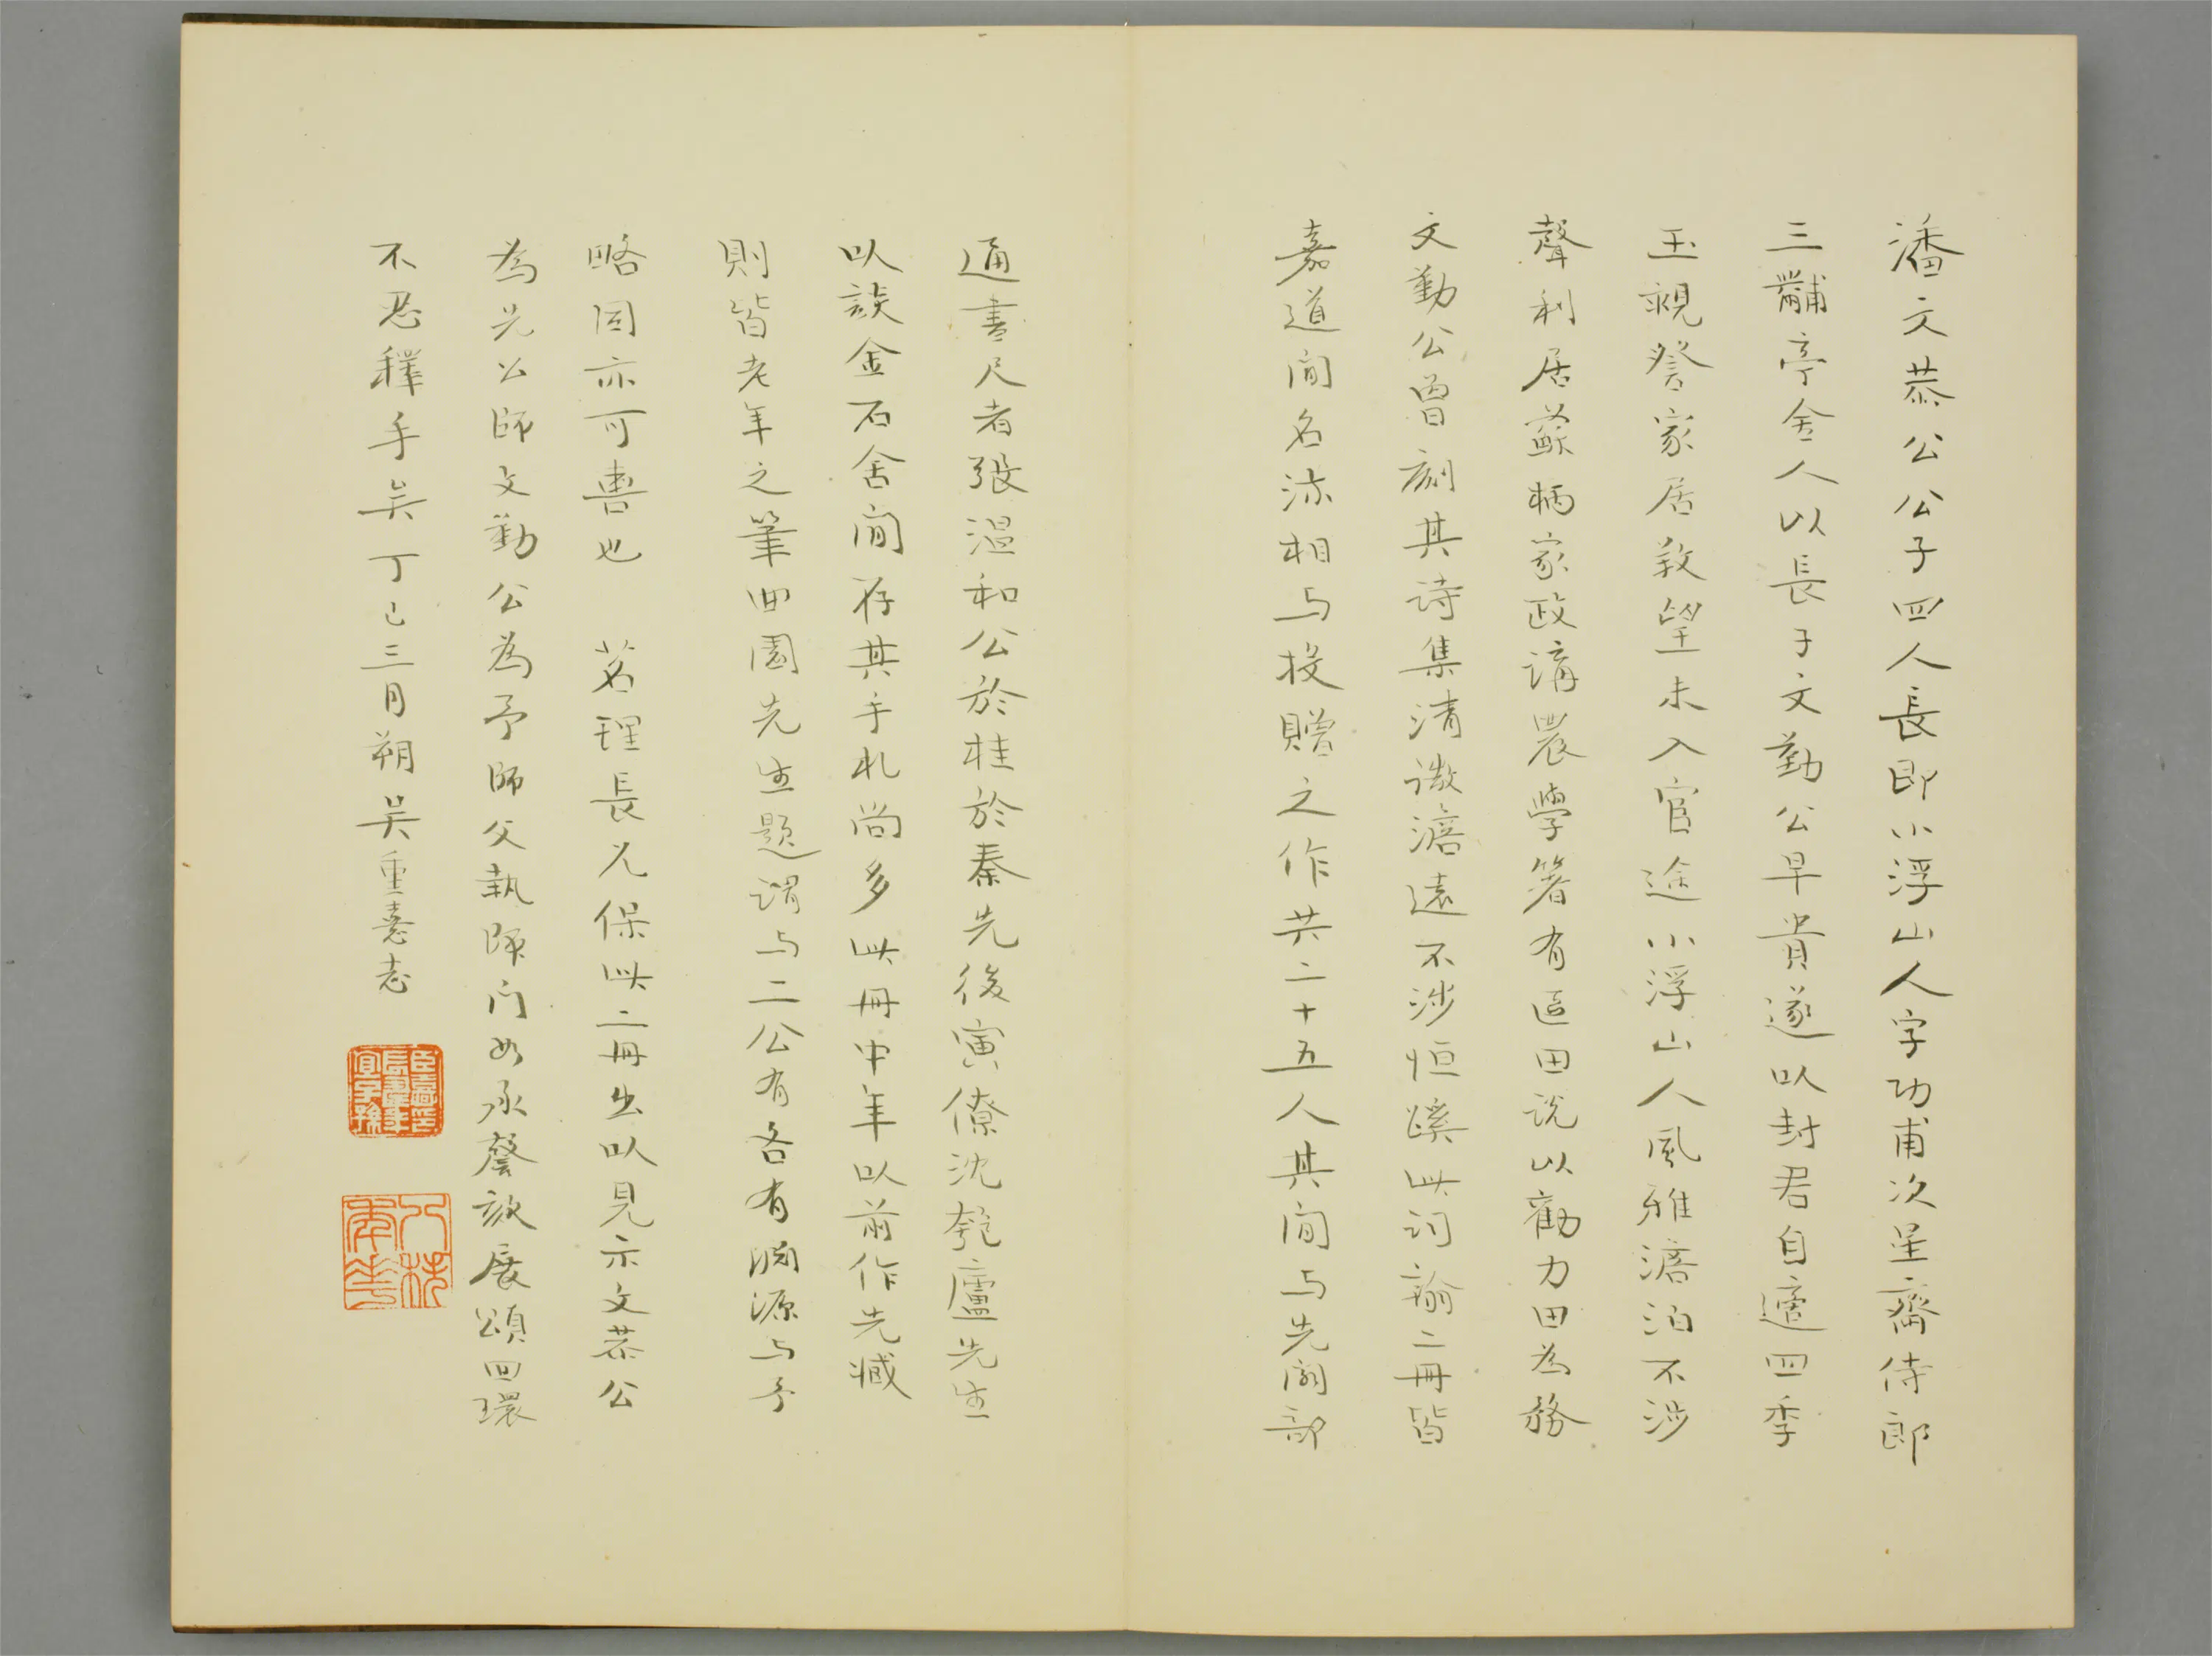 潘文恭公公子四人長即小浮山人字功甫次星齋侍郎
三黼亭舍人以長子文勤公早貴遂以封君自適四季
玉親詧家居敦望未入官途小浮山人風雅澹泊不涉
聲利居蘇柄家政講農學箸有區田說以勸力田為務
文勤公曾刻其詩集清微澹遠不涉恒蹊此詞翰二冊皆
嘉道間名流相与投贈之作共二十五人其間与先閣部
通書尺者張溫和公於桂於秦先後寅僚沈匏廬先生
以談金石舍間存其手札尚多此冊中年以前作先臧
則皆老年之筆曲園先生題謂与二公有各有淵源与予
略同亦可喜也 茗理長兄保此二冊出以見示文恭公
為先公師文勤公為予師父執師門如承謦欬展頌回環
不忍釋手矣丁巳三月朔吳重憙志